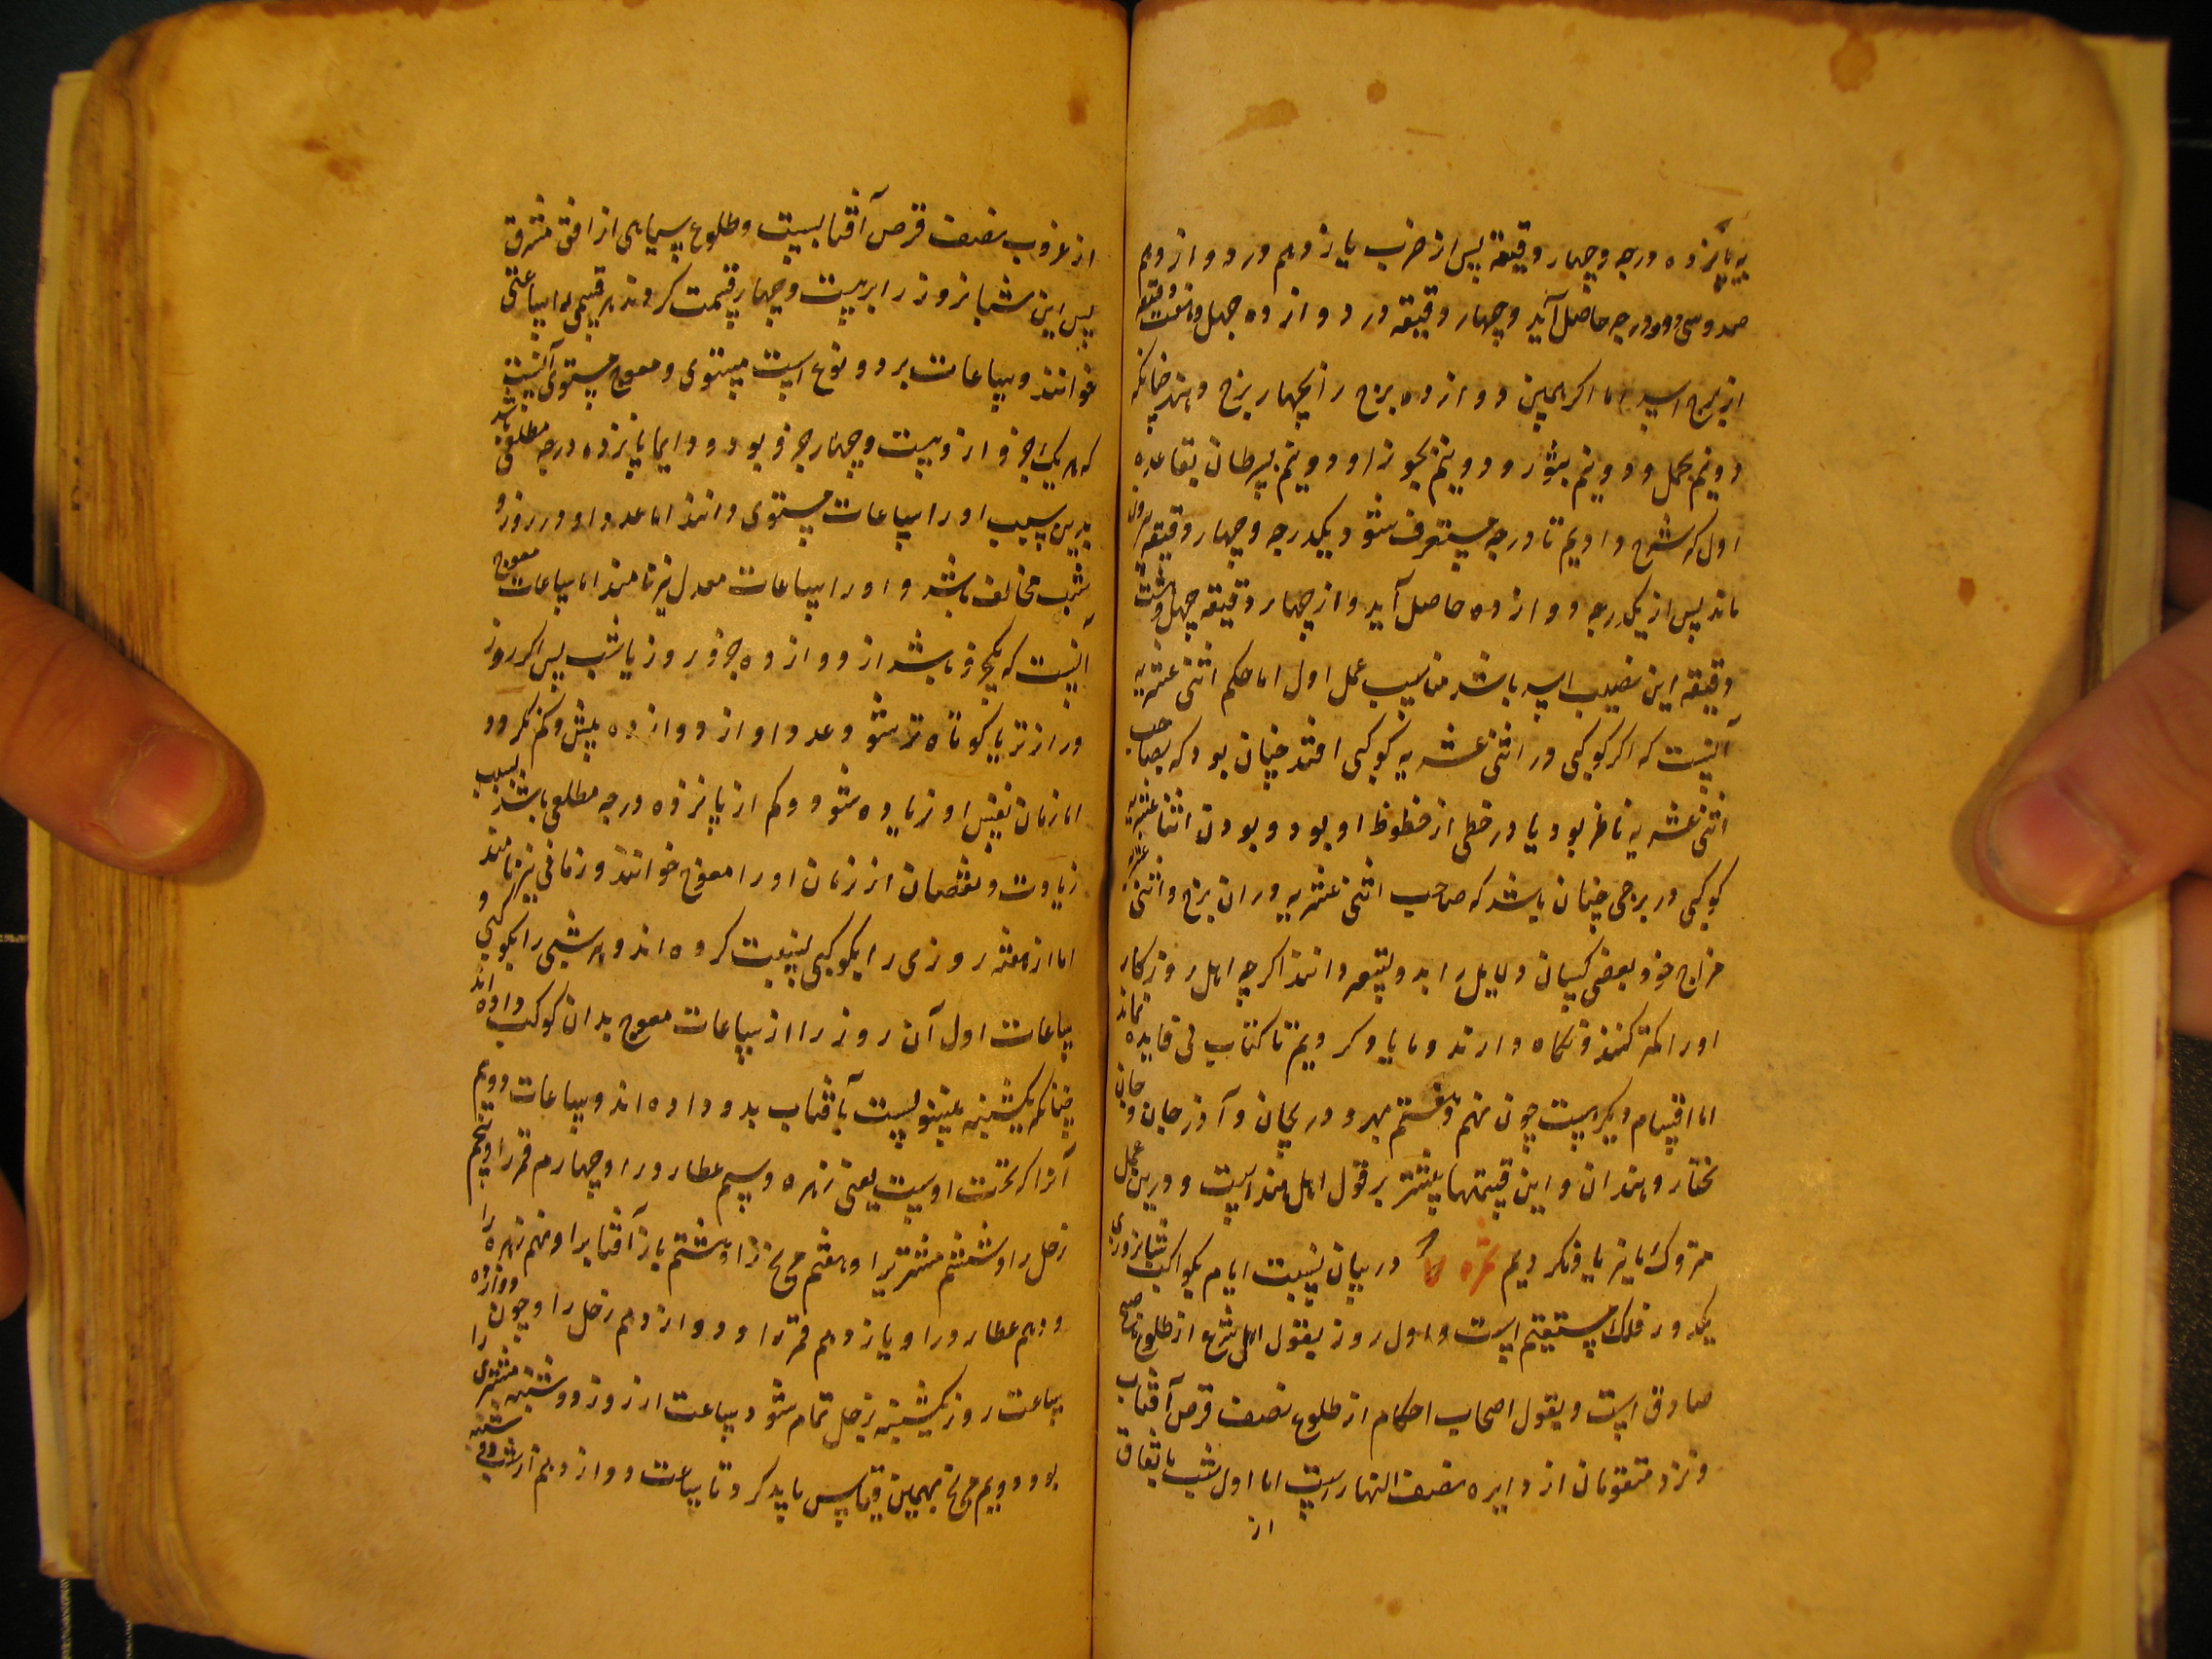 به پانزده درجه و چهار دقیقه پس از ضرب یازدهم در دوازدهم
صد و سی و دو درجه حاصل آید و چهار دقیقه در دوازده چهل و هشت دقیقه
از برج اسد اما اکر همین دوازده برج را بچهار برج دهند چنانکه
دو نیم بحمل و دو نیم بثور و دو نیم بجوزا و دو نیم بسرطان بقاعده
اول که شرح دادیم تا درجه مستغرق شود یکدرجه و چهار دقیقه
ماند پس از یکدرجه دوازده حاصل آید و از چهار دقیقه چهل و هشت
دقیقه این نصیب اسد باشد مناسب عمل اول اما حکم اثنی عشریه
آنست که اکر کوکبی در اثنی عشریه کوکبی افتد چنان بود که بصاحب
اثنی عشریه ناظر بود یا در خطی از خطوط او بود و بودن اثنا عشریه
کوکبی در برجی چنان باشد که صاحب اثنی عشریه در ان برج و اثنی عشریه
مزاج خود بعضی کسان دلایل را بدو تتمه دانند اکرچه اهل روزکار
اورا کمتر کنند و نکاه دارند و ما یاد کردیم تا کتاب بی فایده نماند
اما اقسام دیکرست چون نهم و هشتم بهر و دریجان و آذرجان و جان
بختار و هندان و این قسمتها بیشتر بر قول اهل هند است و درین عمل
متروک ما نیز یاد نکردیم در بیان نسبت ایام بکواکب شبانروزی
یکدور فلک مستقیم است و اول روز بقول اهل شرع از طلوع صبح
صادق است و بقول اصحاب احکام از طلوع نصف قرص آفتاب
و نزد متقومان از دایره نصف النهار است اما اول شب باتفاق
از
از غروب نصف قرص آفتابست و طلوع سیاهی از افق مشرق
پس این شبانروز را بر بیست و چهار قسمت کردند هر قسمی را ساعتی
خوانند و ساعات بر دو نوع است مستوی و معوج مستوی آنست
که هر یک جزو از بیست و چهار جزو بود و دایما پانزده درجه مطلعی باشد
بدین سبب اورا ساعات مستوی دانند اما عدد او در روز و
شب مخالف باشد و اورا ساعات معدل نیز نامند اما ساعات معوج
آنست که یکجزو باشد از دوازده جزو روز یا شب پس اکر روز
درازتر یا کوتاه تر شود عدد او از دوازده بیش و کم نکردد
اما زمان نفس او زیاده شود و کم از پانزده درجه مطلعی باشد بسبب
زیادت و نقصان از زمان اورا معوج خوانند و زمانی نیز نامند
اما از هفته روزی را بکوکبی نسبت کرده اند و هر شبی را بکوکبی و
ساعات اول آن روز را از ساعات معوج بدان کوکب داده اند
چنانکه یکشنبه منسوبست بآفتاب بدو داده اند و ساعات دویم
آنرا که تحت اوست یعنی زهره و سیم عطارد را و چهارم قمر را و پنجم
زحل را و ششم مشتریرا و هفتم مریخ را و هشتم باز آفتابرا و نهم زهره را
و دهم عطارد را و یازدهم قمر را و دوازدهم زحل را و چون دوازده
ساعت روز یکشنبه بزحل تمام شود ساعت از روز دوشنبه مشتری را
بود و دویم مریخ بهمین قیاس باید کرد تا ساعت دوازدهم از شب دوشنبه